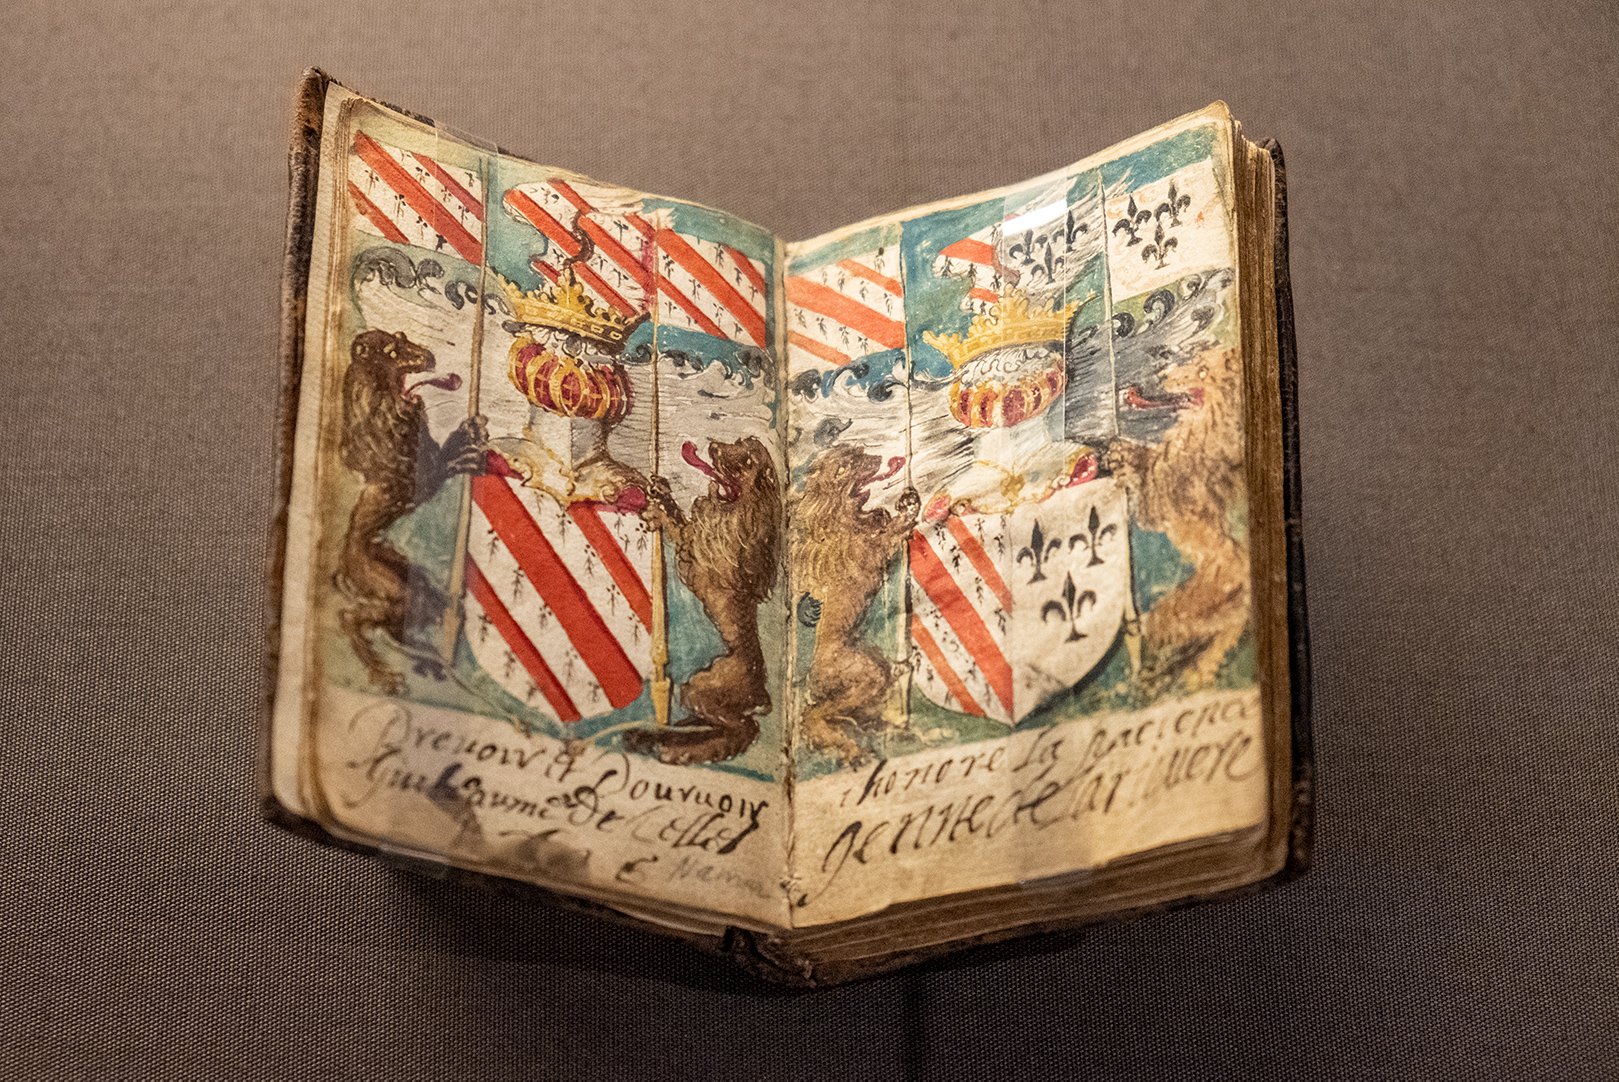 Prevoir et Pourvoir
Guillaume De Celles
Namur
ihonore La pacience
Jenne de la riviere